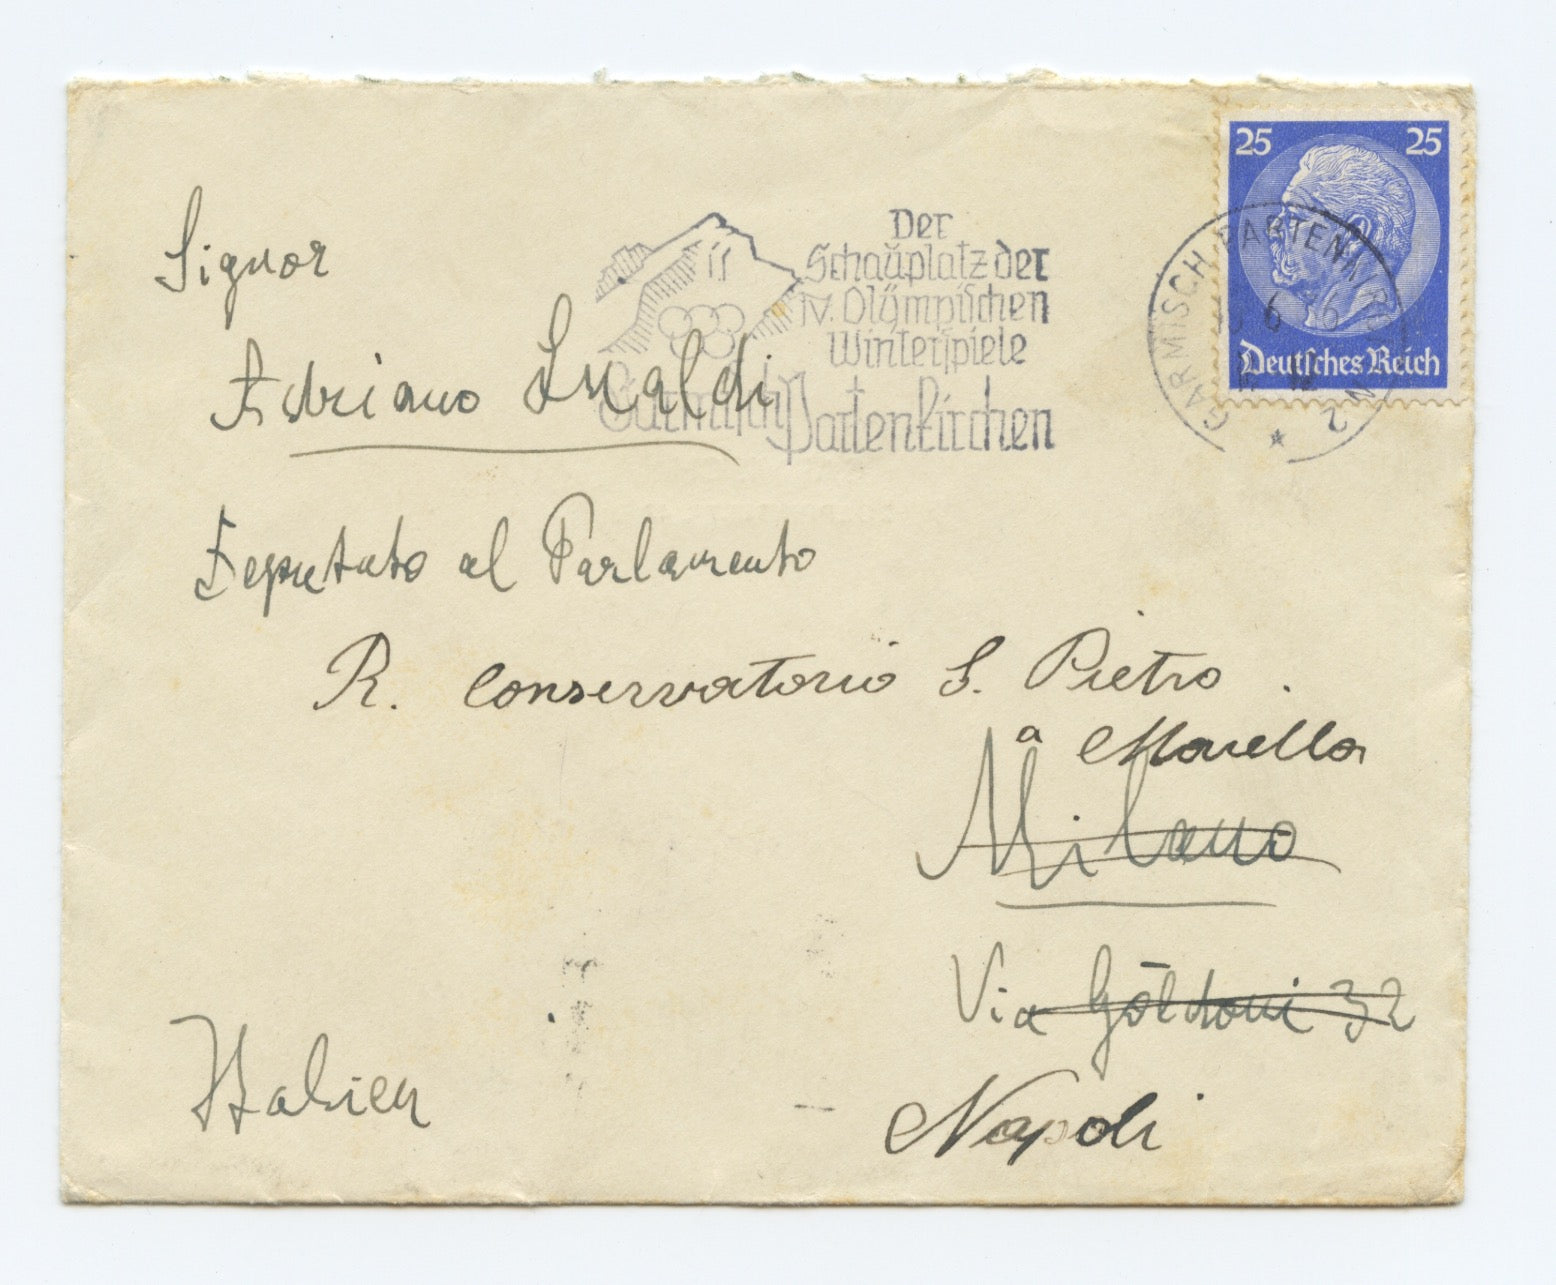 Signor
Adriano Lualdi
Deputato al Parlamento
R. Conservatorio S. Pietro
a Maiella
Milano
Via Goldoni 32
Napoli
Italien
Der
Schauplatz der
IV. Olympischen
Winterspiele
Garmisch Partenkirchen
GARMISCH-PARTENKIRCHEN
2
25 25
Deutsches Reich